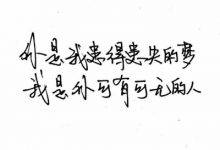 你是我患得患失的梦
我是你可有可无的人